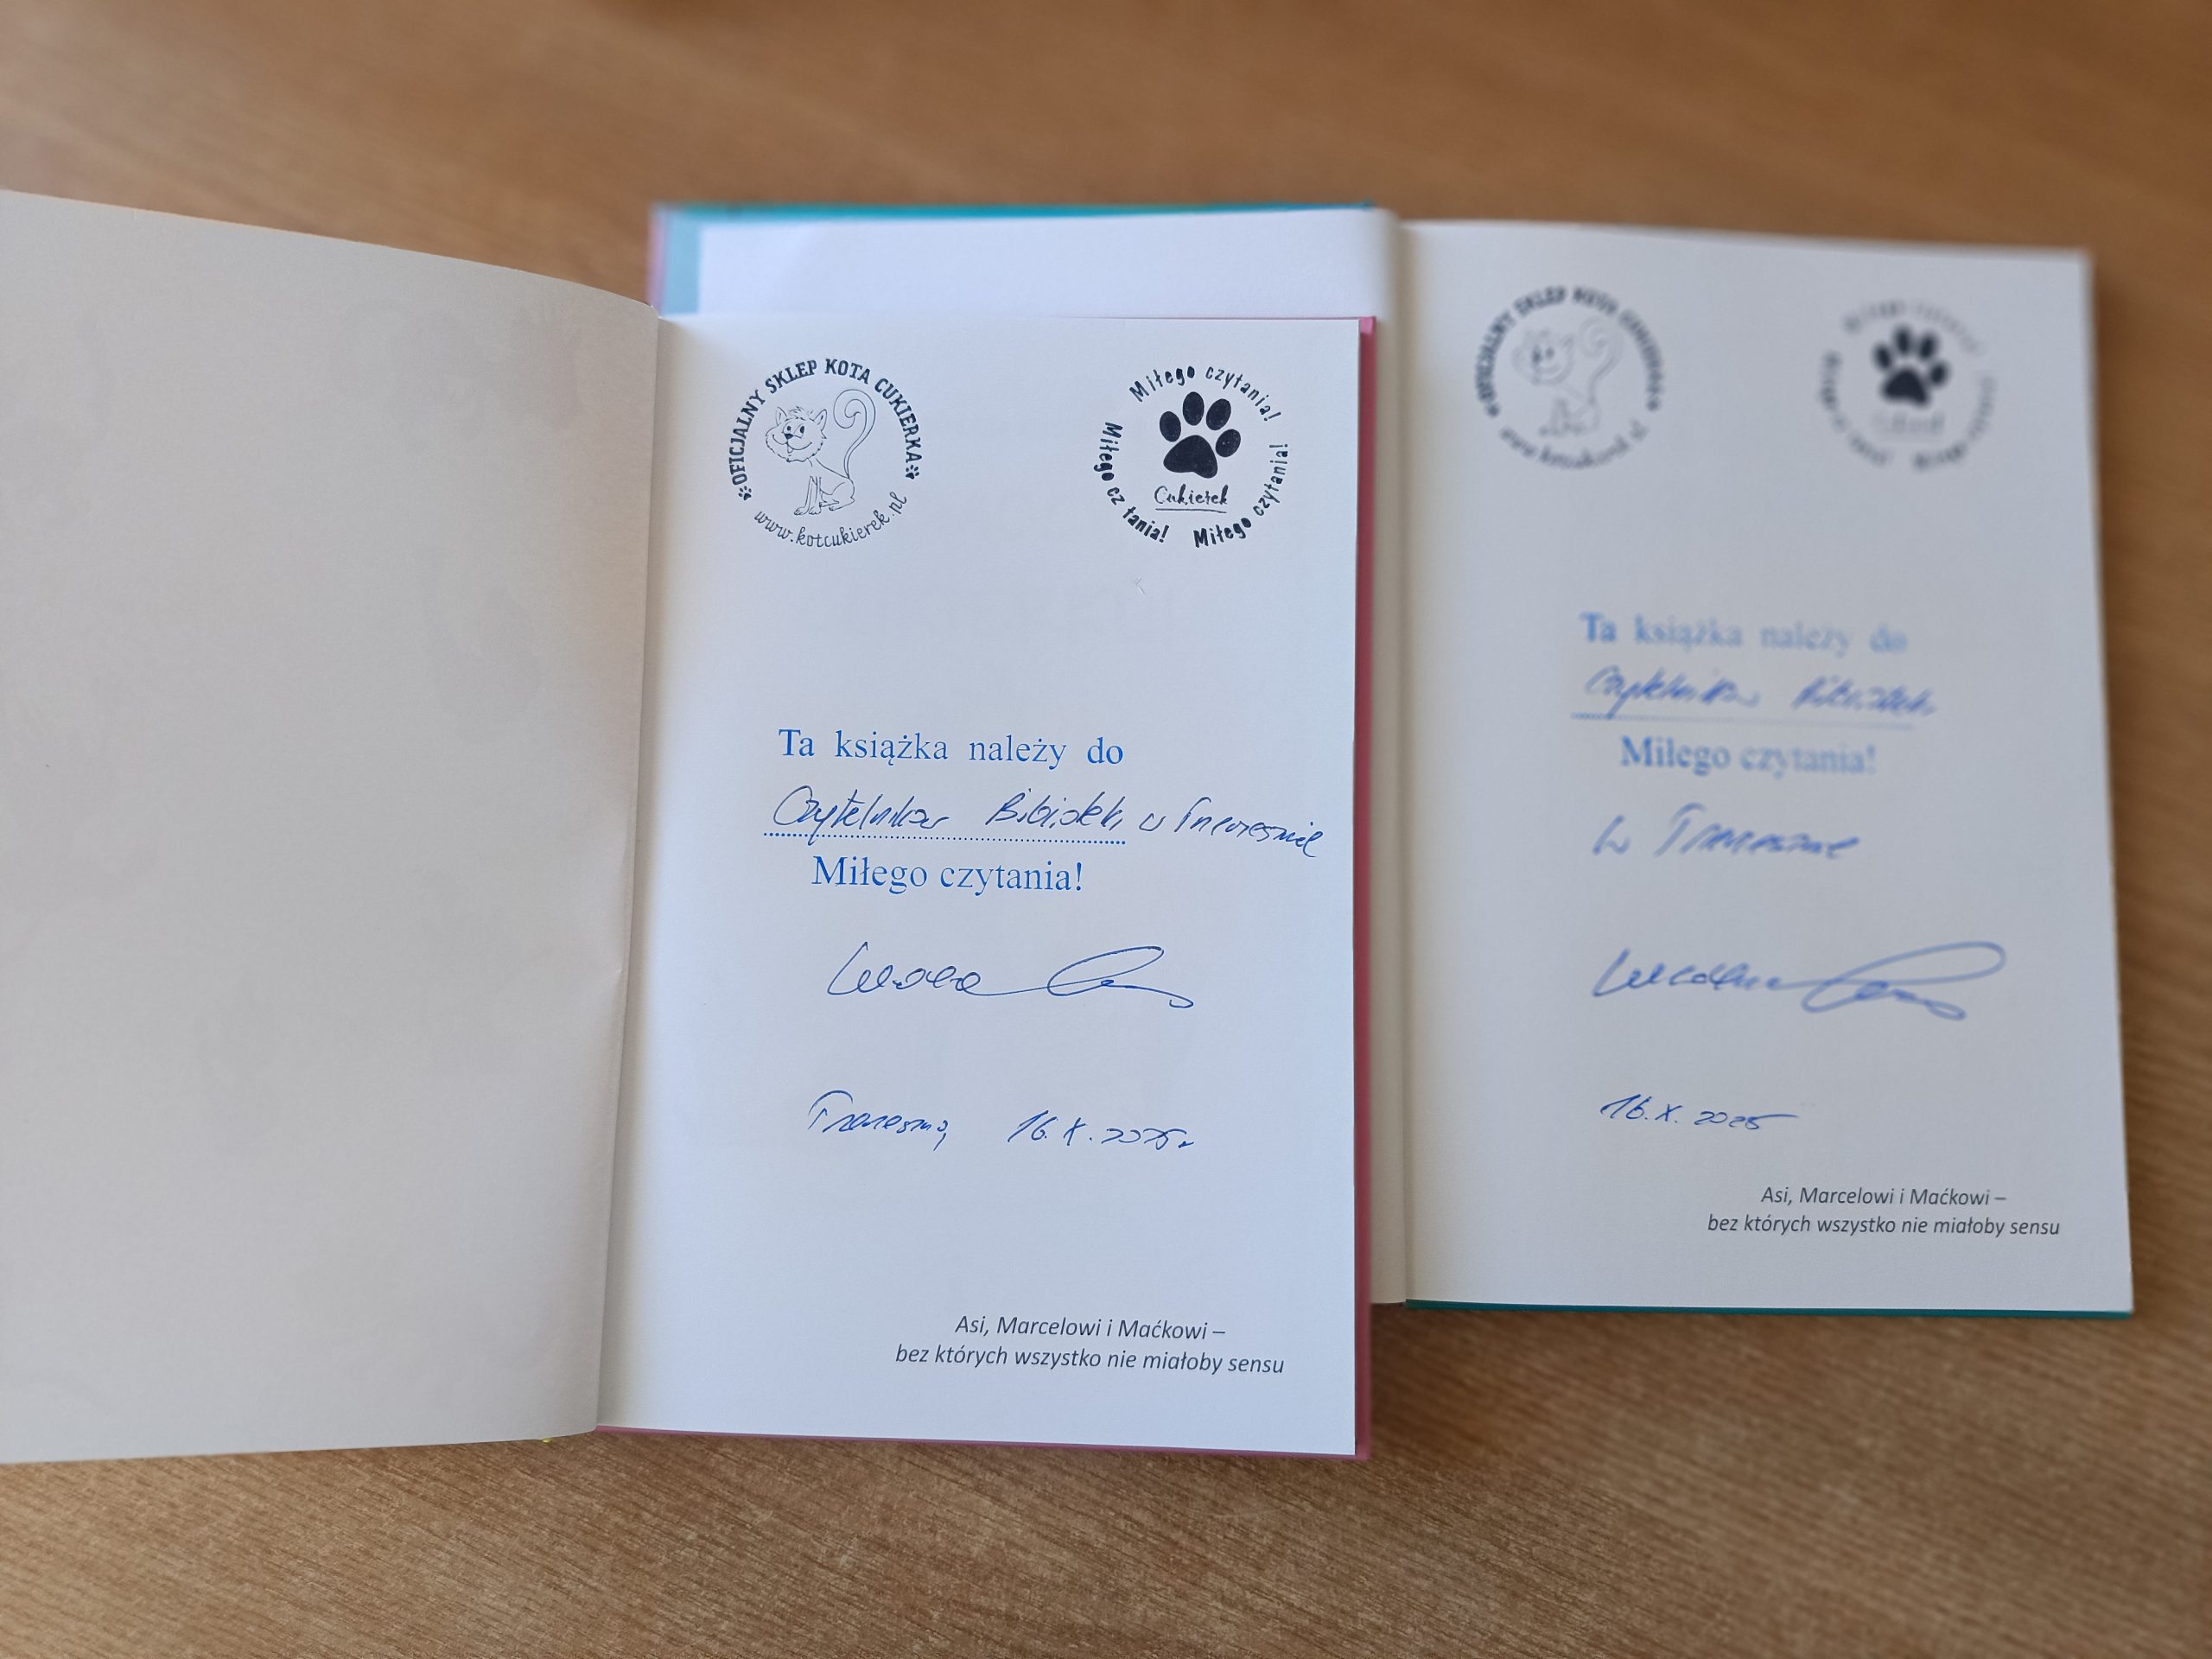 OFICJALNY SKLEP KOTA CUKIERKA
www.kotcukierek.pl
Miłego czytania! Miłego czytania! Miłego cz tania!
Cukierek
Ta książka należy do
Czytelników Biblioteki w Trzemesznie
Miłego czytania!
Trzemeszno, 16.X.2025r
Asi, Marcelowi i Maćkowi –
bez których wszystko nie miałoby sensu
OFICJALNY SKLEP KOTA CUKIERKA
www.kotcukierek.pl
Ta książka należy do
Czytelników Biblioteki
Miłego czytania!
w Trzemesznie
16.X.2025
Asi, Marcelowi i Maćkowi –
bez których wszystko nie miałoby sensu